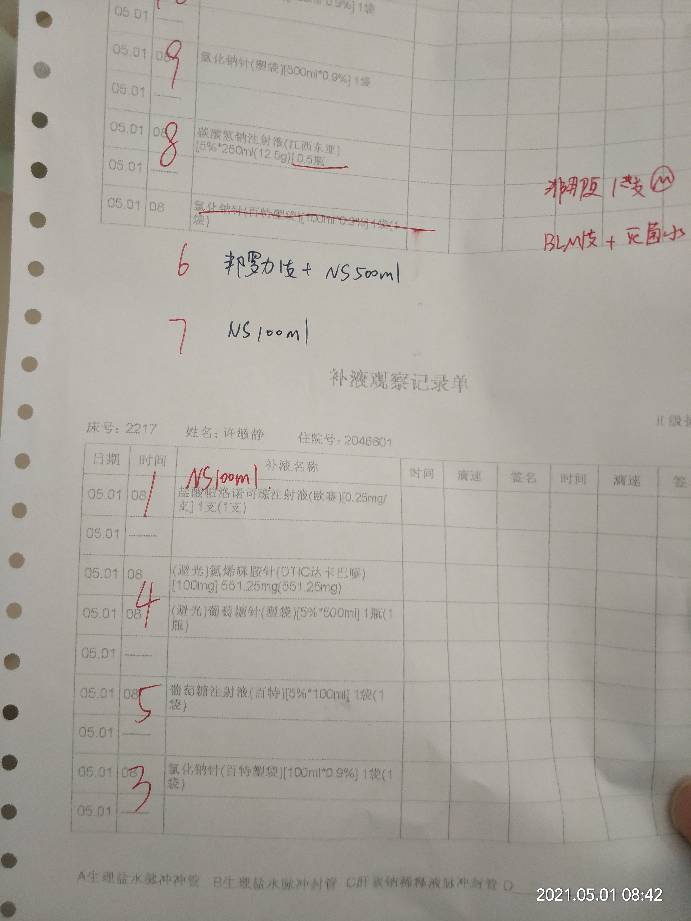 05.01
05.01 08
9
氯化钠针(塑袋)[500ml*0.9%] 1袋
05.01
05.01 08
8
碳酸氢钠注射液(江西东亚)
[5%*250ml(12.5g)] 0.5瓶
05.01
05.01 08
氯化钠针(百特塑袋)[100ml*0.9%] 1袋(1
袋)
1支
BLM 1支 + 灭菌水
6 邦罗力1支 + NS500ml
7 NS100ml
补液观察记录单
II级
床号: 2217 姓名: 住院号: 2046601
日期 时间 补液名称 时间 滴速 签名 时间 滴速 签
NS100ml
05.01 08
1
盐酸帕洛诺司琼注射液(欧赛)[0.25mg/
支] 1支(1支)
05.01
05.01 08
(避光)氮烯咪胺针(DTIC达卡巴嗪)
[100mg] 551.25mg(551.25mg)
4
05.01 08
(避光)葡萄糖针(塑袋)[5%*500ml] 1瓶(1
瓶)
05.01
05.01 08
5
葡萄糖注射液(百特)[5%*100ml] 1袋(1
袋)
05.01
05.01 08
3
氯化钠针(百特塑袋)[100ml*0.9%] 1袋(1
袋)
05.01
A生理盐水脉冲冲管 B生理盐水脉冲封管 C肝素钠稀释液脉冲封管 D
2021.05.01 08:42